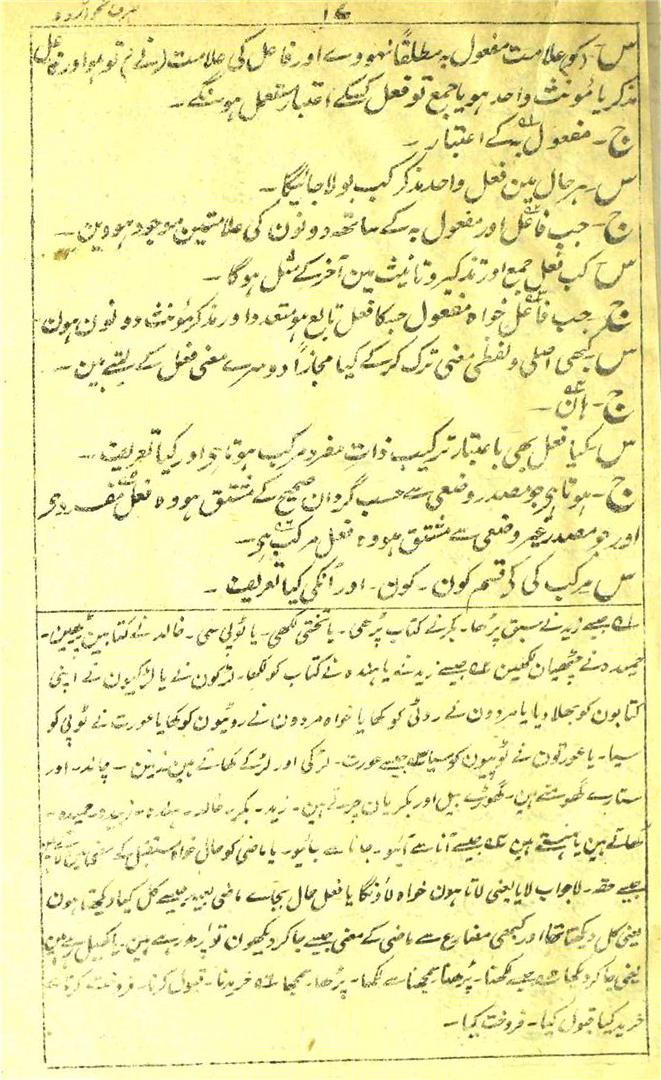 صرف نحو اردو
۱۶
س۔ (کو) علامت مفعول بہ مطلقًا نہووے اور فاعل کی علامت (نے) تو ہو اور فاعل
مذکر یا مُونث واحد ہو یا جمع تو فعل کسکے اعتبار مستعمل ہونگے۔
ج۔ مفعول بہ کے اعتبار۔
س ہر حال مین فعل واحد مذکر کب بولا جائیگا۔
ج۔ جب فاعل اور مفعول بہ کے ساتھ دونون کی علامتین موجود ہووین۔
س کب فعل جمع اور تذکیر و تانیث مین آخر کے مثل ہوگا۔
ج۔ جب فاعل خواہ مفعول جسکا فعل تابع ہو متعدد اور مذکر مُونث دونون ہون
س کبھی اصلی و لفظی معنی ترک کرکے کیا مجازًا دوسرے معنی فعل کے لیتے ہین۔
ج۔ ہان۔
س کیا فعل بھی باعتبار ترکیب ذات مفرد مرکب ہوتا ہو اور کیا تعریف۔
ج۔ ہوتا ہی جو مصدر وضعی سے حسب گردان صحیح کے مشتق ہو وہ فعل مفرد ہی
اور جو مصدر غیر وضعی سے مشتق ہو وہ فعل مرکب ہی۔
س مرکب کی کَی قسم کون۔ کون۔ اور اُنکی کیا تعریف۔
۵۱ جیسے زید نے سبق پڑھا۔ بکر نے کتاب پڑھی۔ یا تختی لکھی۔ یا ٹوپی سی۔ خالد نے کتابین
حمیدہ نے چٹھیان لکھین ۵۲ جیسے زید نے یا ہندہ نے کتاب کو لکھا۔ لڑکون نے یا لڑکیون نے اپنی
کتابون کو بھلا دیا یا مردون نے روٹی کو کھایا خواہ مردون نے روٹیون کو کھایا عورت نے ٹوپی کو
سیا۔ یا عورتون نے ٹوپیون کو سیا ۵۳ جیسے عورت۔ لڑکی اور لڑکے کھاتے ہین زمین۔ چاند۔ اور
ستارے گھومتے ہین۔ گھوڑے بیل اور بکریان چرتے ہین۔ زید۔ بکر۔ خالد۔ ہندہ۔ زبیدہ حمیدہ۔
کھاتے ہین یا ہنستے ہین ۵۴ جیسے آنا سے آئیو۔ جانا سے جائیو۔ یا ماضی کو حال خواہ مستقبل کے
جیسے حقہ۔ لا جواب لایا یعنی لاتا ہون خواہ لاؤنگا یا فعل حال بجائے ماضی بعید جیسے کل کیا دیکھتا ہون
یعنی کل دیکھتا تھا اور کبھی مضارع سے ماضی کے معنی جیسے جا کر دیکھون تو پڑھ رہے ہین۔ یا کھیل رہے ہین
یعنی جا کر دیکھا ۵۵ جیسے لکھنا۔ پڑھنا۔ سمجھنا سے لکھا۔ پڑھا۔ سمجھا ۵۶ خریدنا۔ قبول کرنا۔ فروخت کرنا
خرید کیا قبول کیا۔ فروخت کیا۔